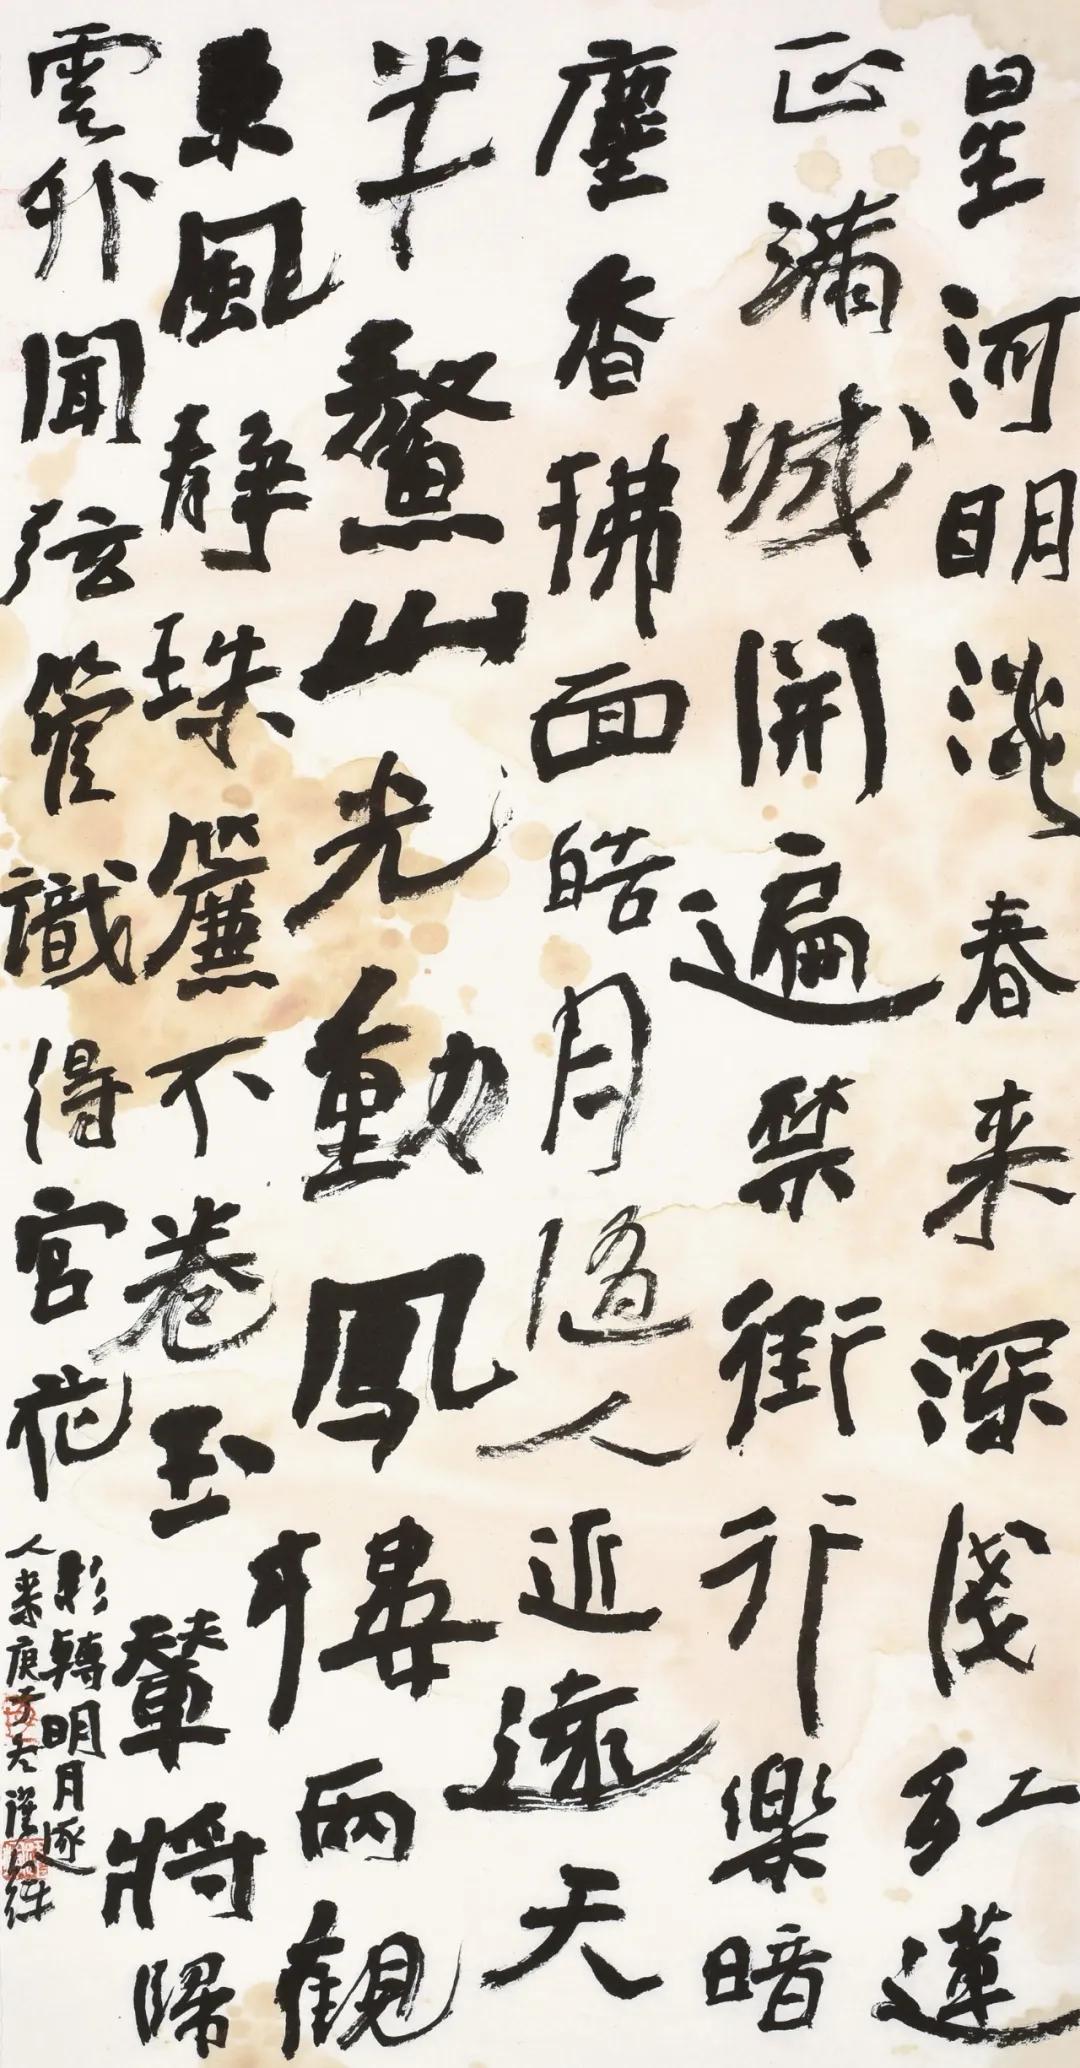 星河明淡春来深淺红蓮
正满城開遍禁街行樂暗
塵香拂面皓月随人近遠天
半鰲山光動鳳樓兩觀
東風静珠簾不卷玉輦將歸
雲外聞弦管識得宫花
影轉明月逐
人来庚子